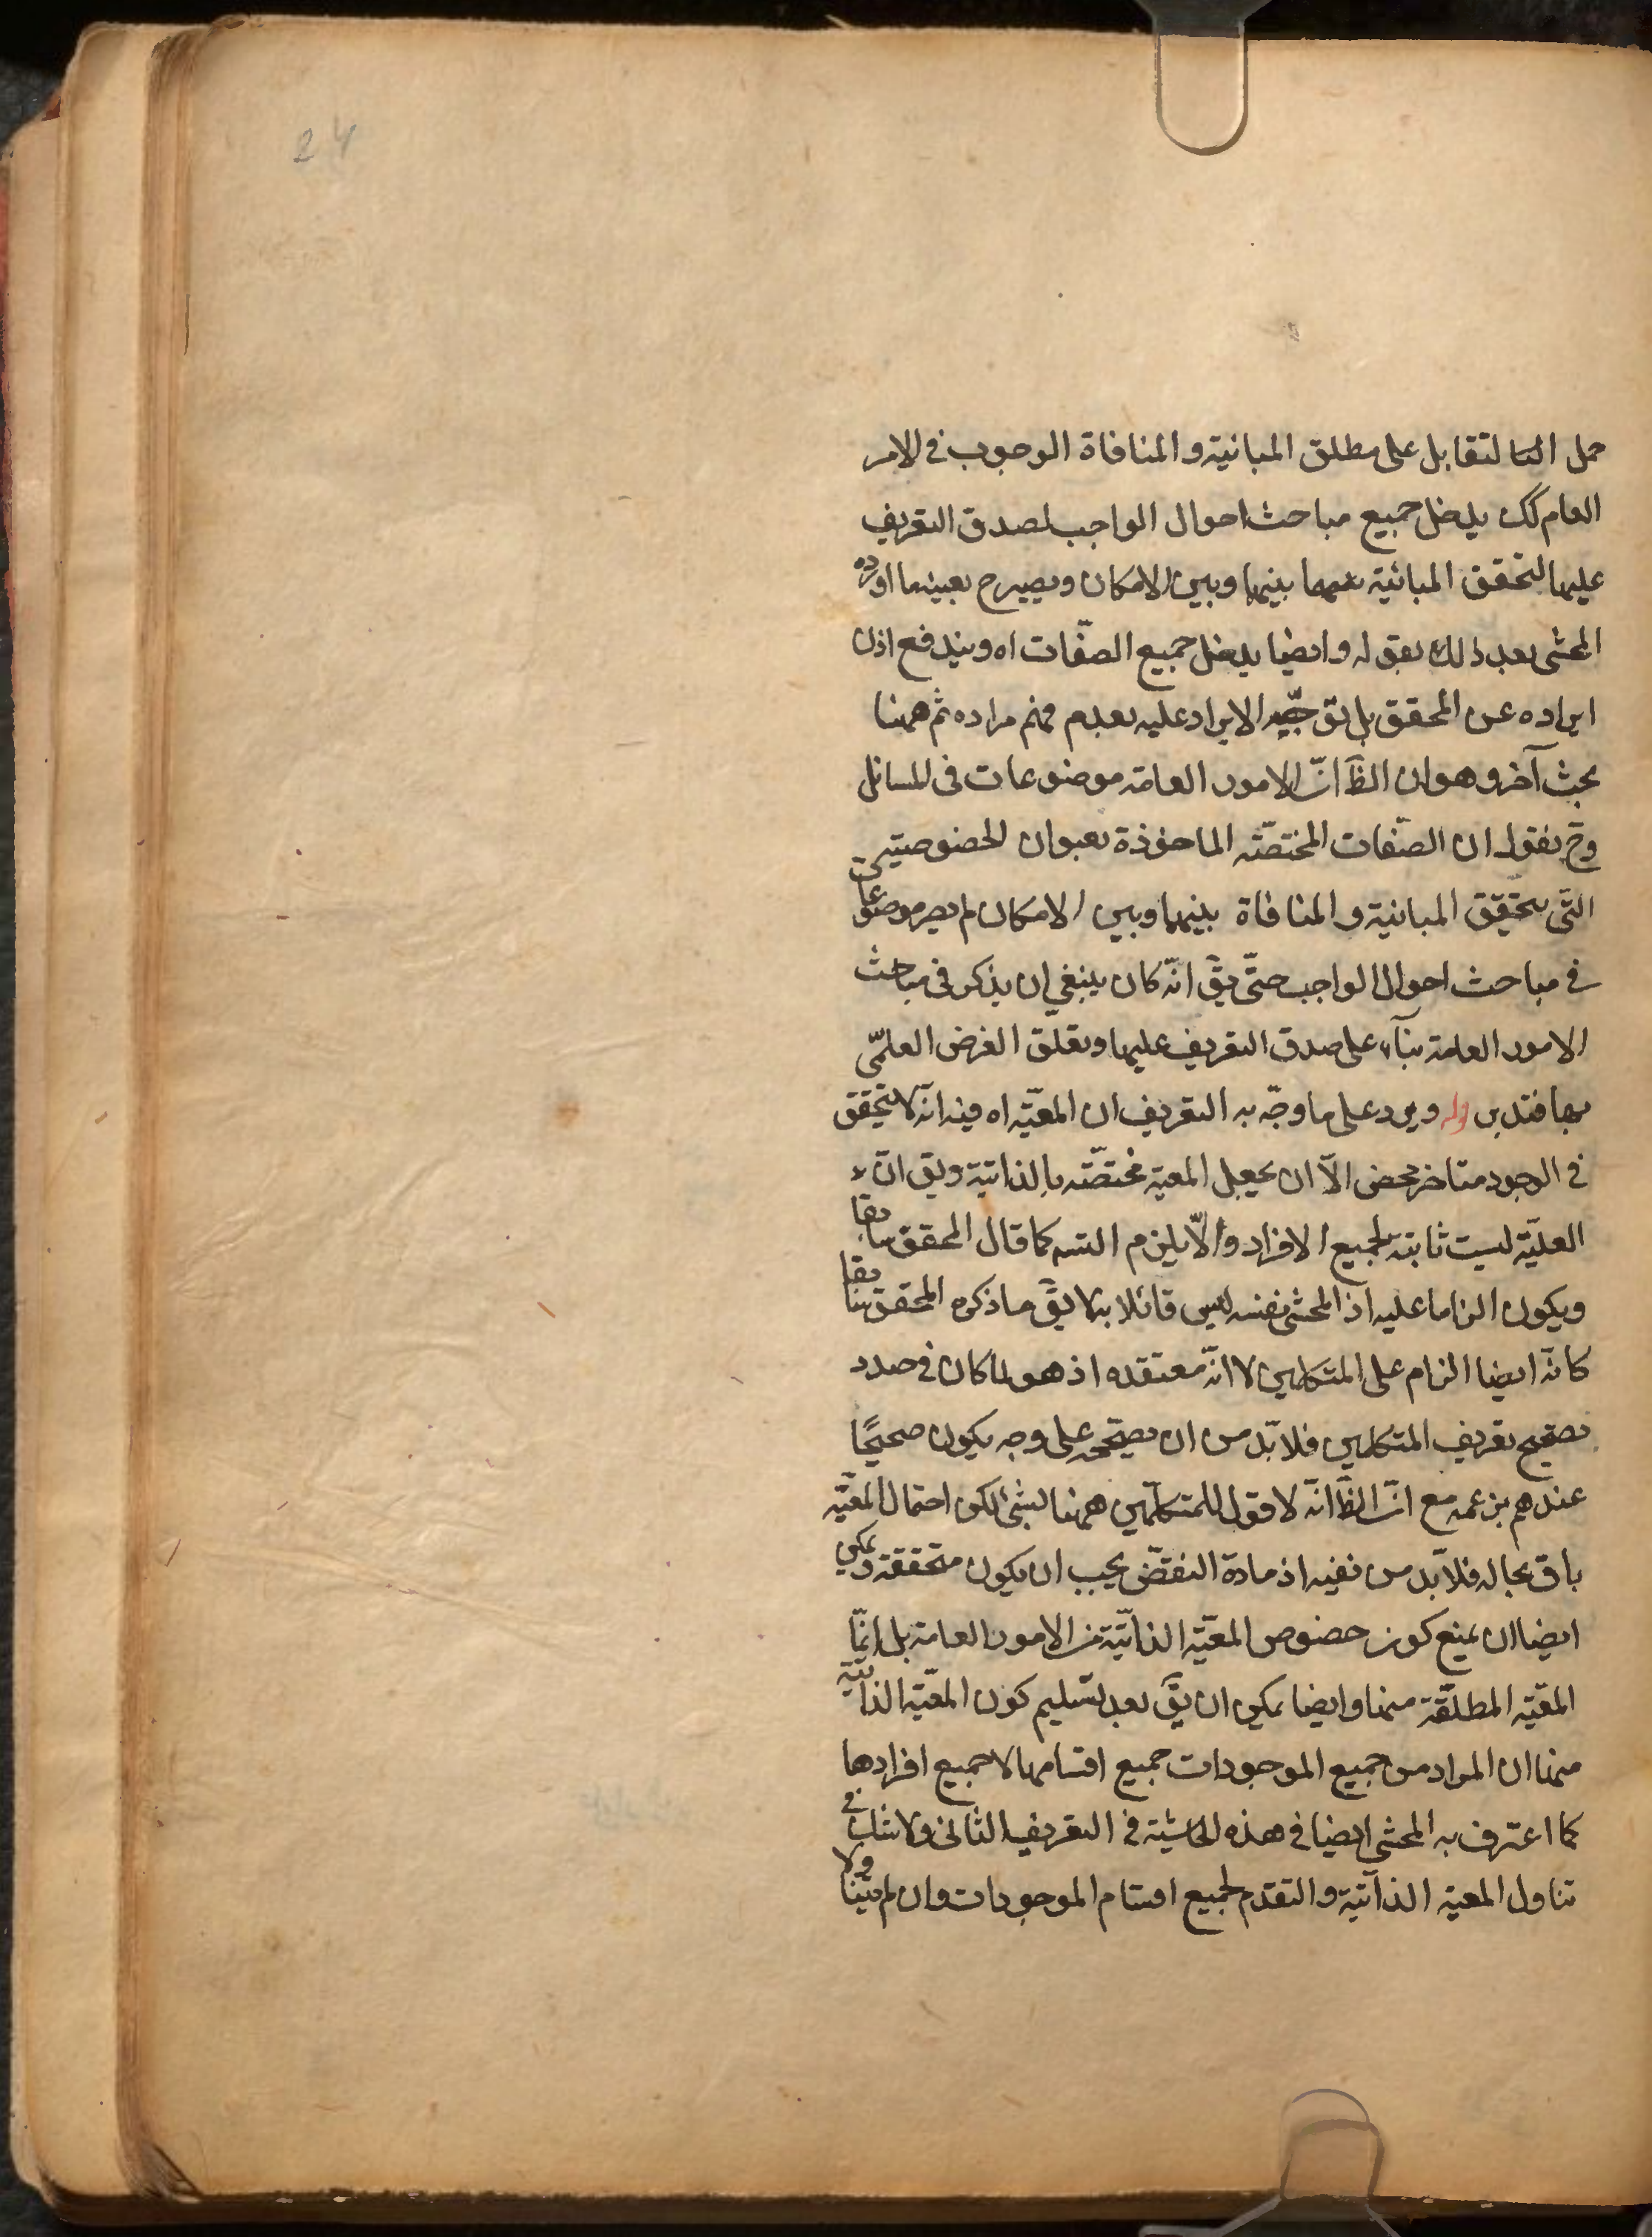 24
حمل التقابل على مطلق المباينة و المنافاة الوجوب فى الامر
العام كك يدخل جميع مباحث احوال الواجب لصدق التعريف
عليها لتحقق المباينة بينها وبين الامكان ويصير ح بعينه ما اورده
المحشى بعد ذلك بقوله وايضا يدخل جميع الصفات اه ويندفع اذن
ايراده عن المحقق بل توجّه الايراد عليه بعدم فهم مراده ثم ههنا
بحث آخر وهو ان الظ انّ الامور العامة موضوعات فى المسائل
وح نقول ان الصّفات المختصّة الماخوذة بعنوان الخصوصية
التى يتحقق المباينة و المنافاة بينها وبين الامكان لم يصر موضوعات
فى مباحث احوال الواجب حتّى يقّ انّه كان ينبغي ان يذكر فى مباحث
الامور العامة بناء على صدق التعريف عليها وتعلّق الغرض العلمىّ
بها فتدبر قوله ويرد على ما وجّه به التعريف ان المعيّة اه فيه انّه لا يتحقق
فى الوجود متاخر محض الّا ان يجعل المعية مختصّة بالذاتية ويق انّ
العليّة ليست ثابتة لجميع الافراد والّا يلزم التسه كما قال المحقق سابقا
ويكون الزاما عليه اذ المحشى نفسه ليس قائلا به لا يقّ ما ذكره المحقق سابقا
كانّه ايضا الزام على المتكلمين لا انّه معتقده اذ هو لما كان فى صدد
تصحيح تعريف المتكلمين فلا بّد من ان يصحّحه على وجه يكون صحيحًا
عندهم بزعمه مع انّ الظ انّه لا قول للمتكلّمين ههنا بشئ لكن احتمال المعيّة
باق بحاله فلا بّد من نفيه اذ مادة النقض يجب ان يكون متحققة ويمكن
ايضا ان يمنع كون خصوص المعيّة الذاتيّة من الامور العامة بل انّما
المعيّة المطلقة منها وايضا يمكن ان يقّ بعد تسليم كون المعيّة الذاتيّة
منها ان المراد من جميع الموجودات جميع اقسامها لا جميع افرادها
كما اعترف به المحشى ايضا فى هذه الحاشية فى التعريف الثانى ولا شك فى
تناول المعية الذاتية و التقدم لجميع اقسام الموجودات وان لم يتناولا